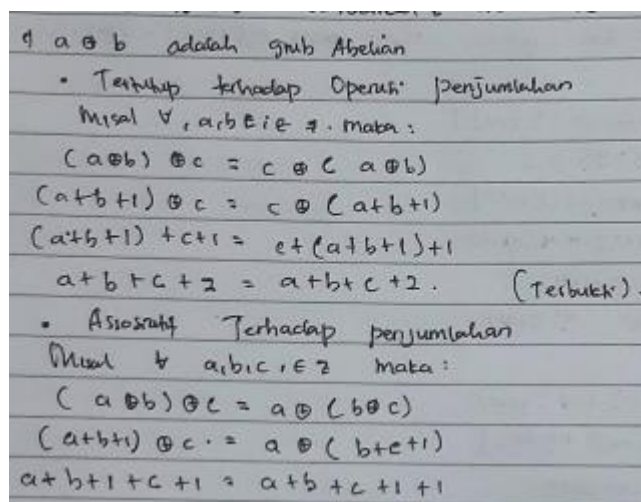 a ⊕ b adalah grub Abelian
• Tertutup terhadap Operasi penjumlahan
Misal ∀, a,b maka :
(a⊕b) ⊕ c = c ⊕ ( a⊕b)
(a+b+1) ⊕ c = c ⊕ (a+b+1)
(a+b+1) + c+1 = c+(a+b+1)+1
a+b+c+2 = a+b+c+2. (Terbukti).
• Assosiatif Terhadap penjumlahan
Misal ∀ a,b,c, ∈ Z maka :
( a ⊕b) ⊕ c = a ⊕ (b⊕c)
(a+b+1) ⊕ c = a ⊕ ( b+c+1)
a+b+1+c+1 = a+b+c+1+1